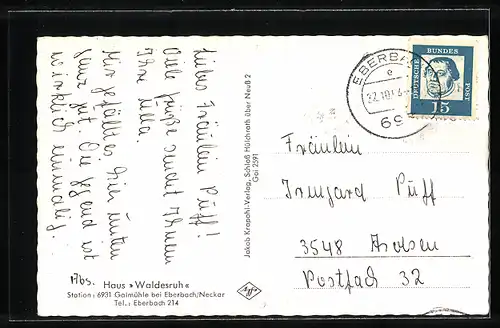 Liebes Fräulein Puff!
Viele Grüße sendet Ihnen
Ihre Ulla.
Mir gefällt es hier unten
ganz gut. Die Gegend ist
wirklich einmalig.
Abs. Haus »Waldesruh«
Station: 6931 Gaimühle bei Eberbach/Neckar
Tel.: Eberbach 214
Jakob Krapohl-Verlag, Schloß Hülchrath über Neuß 2
Gai 2591
Agfa
EBERBA
e
69
DEUTSCHE
BUNDES
POST
15
Fräulein
Irmgard Puff
3548 Arolsen
Postfach 32